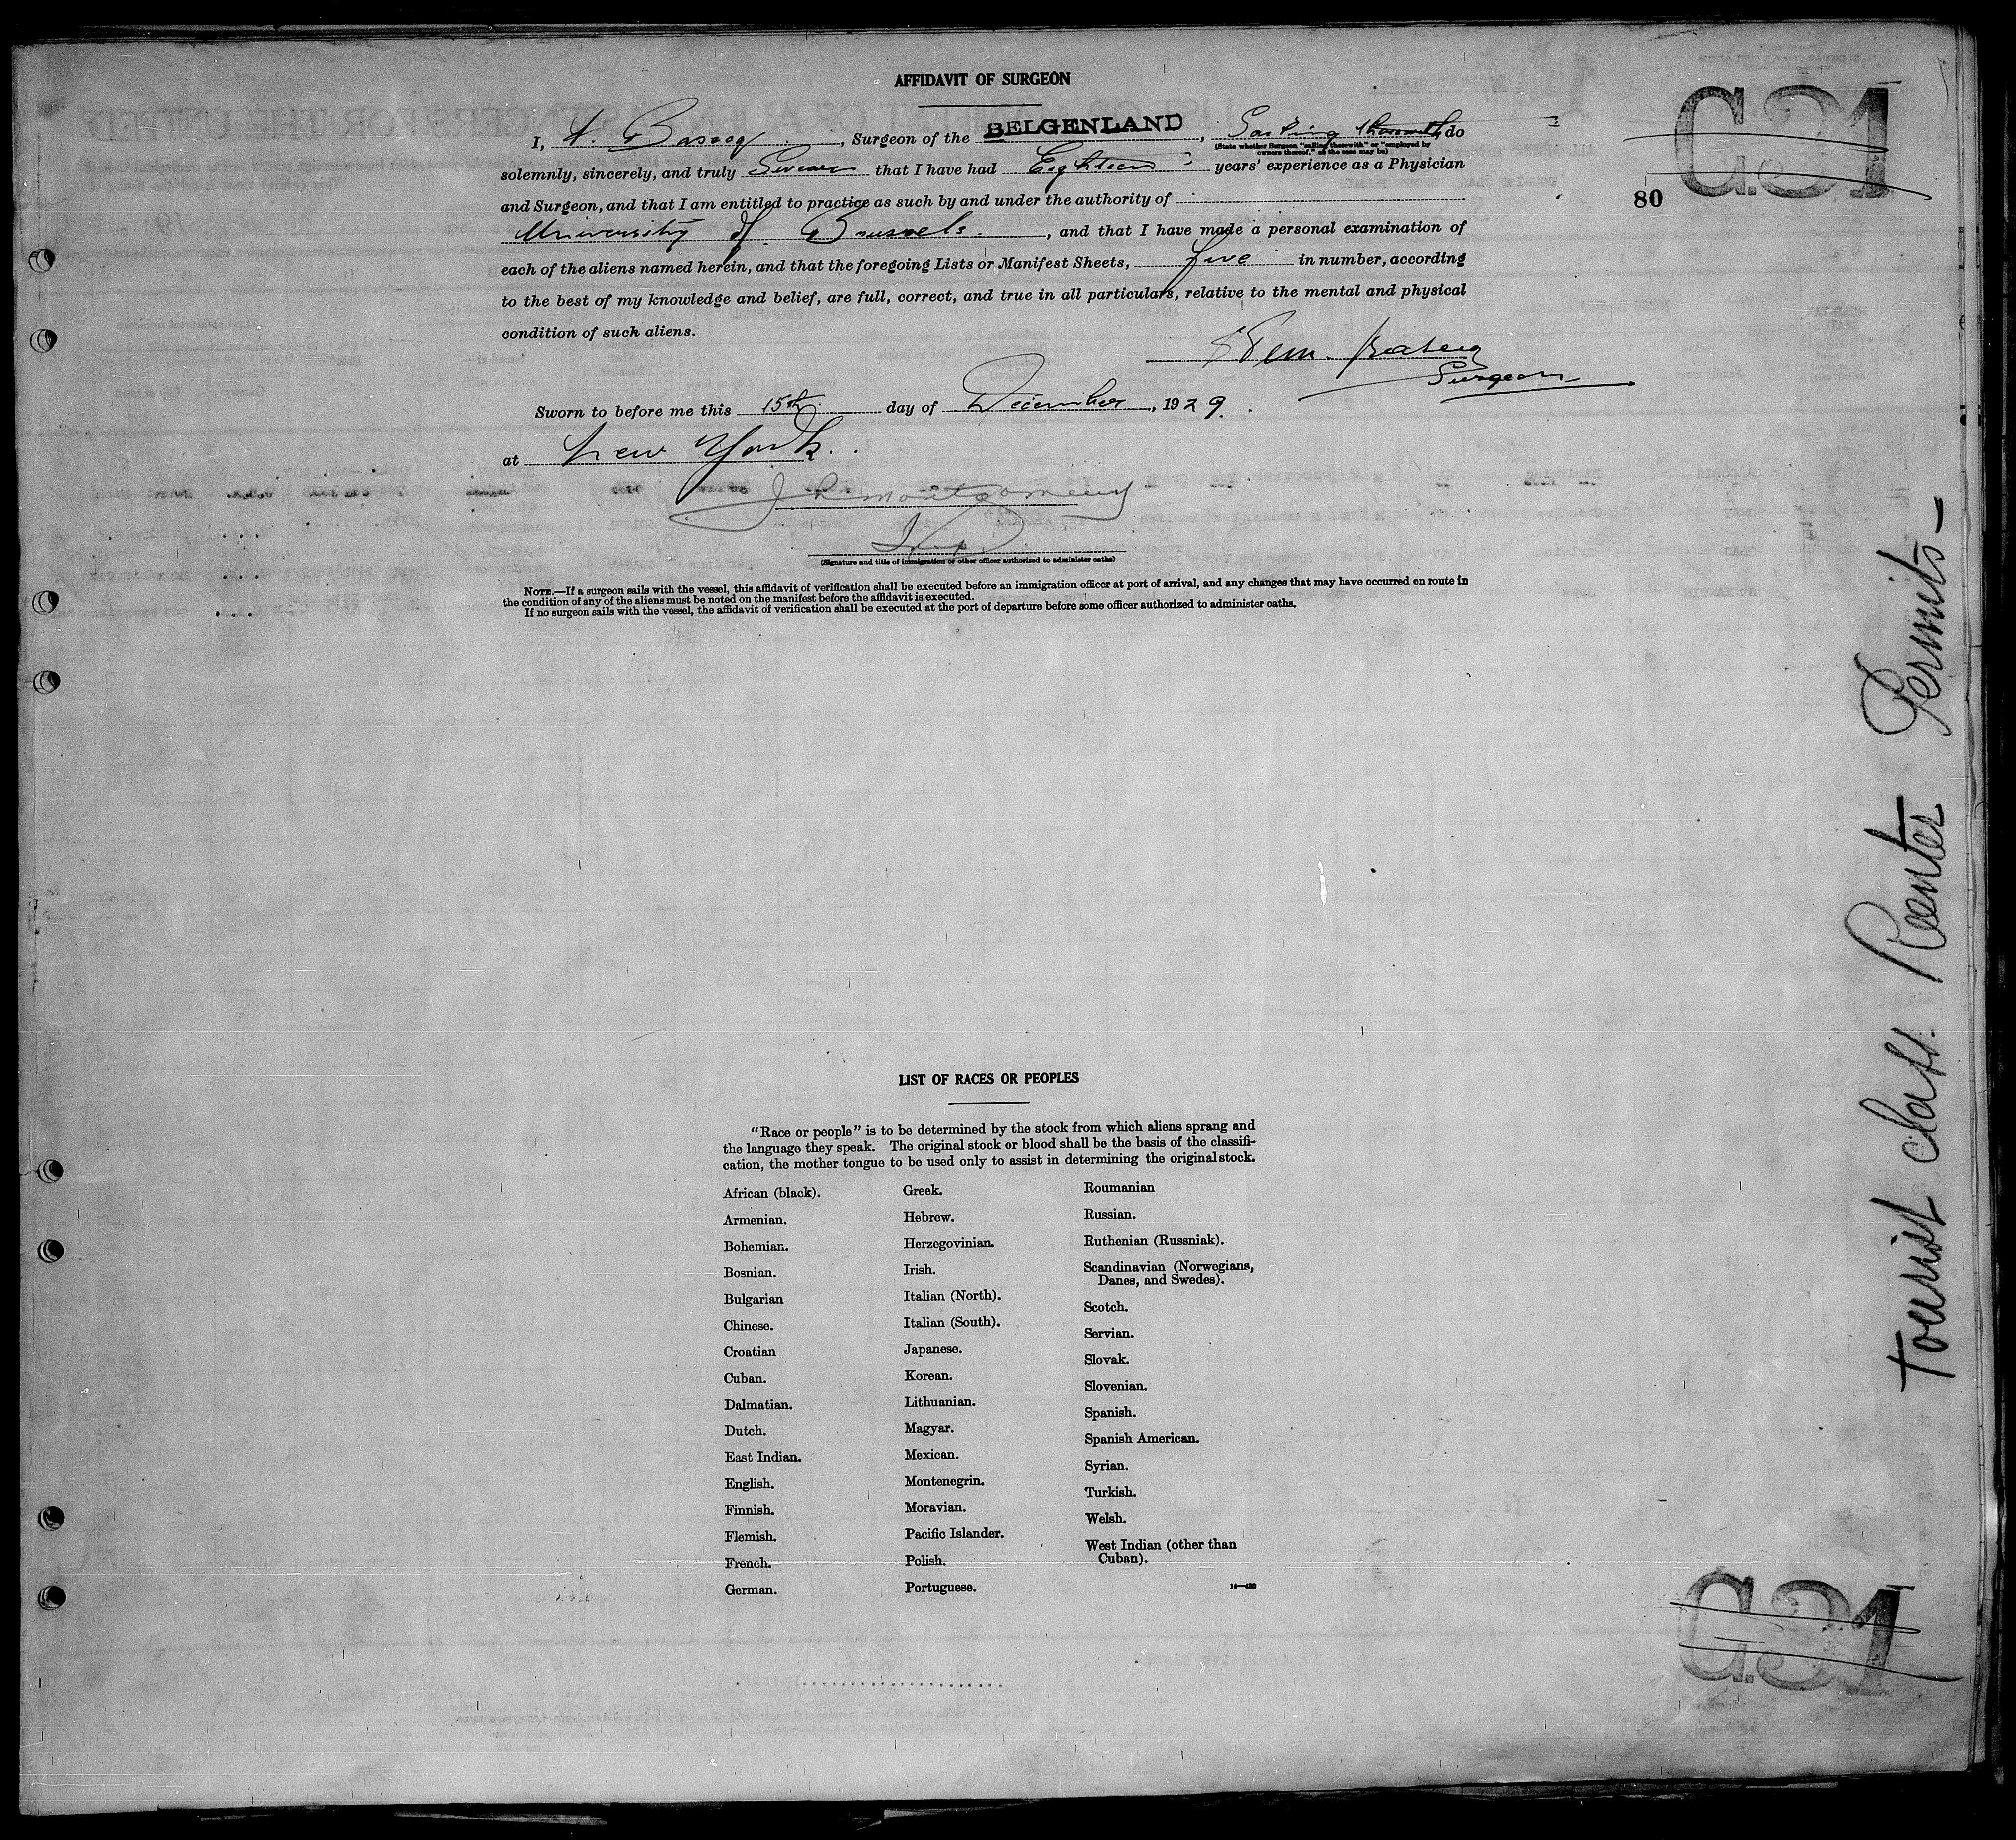 AFFIDAVIT OF SURGEON
I, A. , Surgeon of the BELGENLAND, Sailing therewith, do
(State whether Surgeon "sailing therewith" or "employed by
owners thereof," as the case may be)
solemnly, sincerely, and truly Swear that I have had Eighteen years' experience as a Physician
80
and Surgeon, and that I am entitled to practice as such by and under the authority of
University of Brussels. , and that I have made a personal examination of
each of the aliens named herein, and that the foregoing Lists or Manifest Sheets, five in number, according
to the best of my knowledge and belief, are full, correct, and true in all particulars, relative to the mental and physical
condition of such aliens.
Surgeon
Sworn to before me this 15th day of December, 1929.
at New York.
Montgomery
(Signature and title of immigration or other officer authorized to administer oaths)
NOTE.—If a surgeon sails with the vessel, this affidavit of verification shall be executed before an immigration officer at port of arrival, and any changes that may have occurred en route in
the condition of any of the aliens must be noted on the manifest before the affidavit is executed.
If no surgeon sails with the vessel, the affidavit of verification shall be executed at the port of departure before some officer authorized to administer oaths.
Tourist class. Reenter Permits-
LIST OF RACES OR PEOPLES
"Race or people" is to be determined by the stock from which aliens sprang and
the language they speak. The original stock or blood shall be the basis of the classifi-
cation, the mother tongue to be used only to assist in determining the original stock.
African (black).
Armenian.
Bohemian.
Bosnian.
Bulgarian
Chinese.
Croatian
Cuban.
Dalmatian.
Dutch.
East Indian.
English.
Finnish.
Flemish.
French.
German.
Greek.
Hebrew.
Herzegovinian.
Irish.
Italian (North).
Italian (South).
Japanese.
Korean.
Lithuanian.
Magyar.
Mexican.
Montenegrin.
Moravian.
Pacific Islander.
Polish.
Portuguese.
Roumanian
Russian.
Ruthenian (Russniak).
Scandinavian (Norwegians,
Danes, and Swedes).
Scotch.
Servian.
Slovak.
Slovenian.
Spanish.
Spanish American.
Syrian.
Turkish.
Welsh.
West Indian (other than
Cuban).